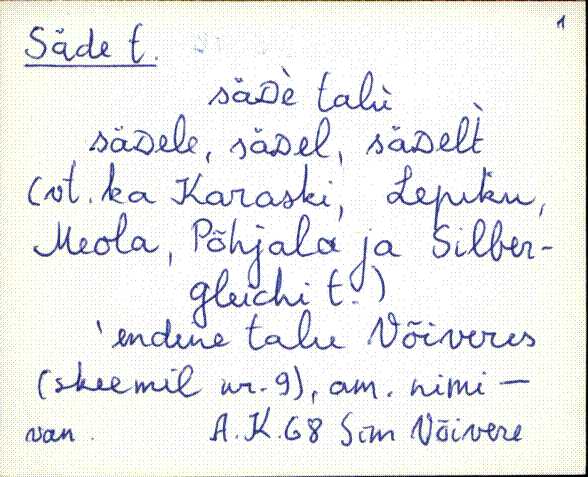 1
Säde t.
säDè talù
säDele, säDel, säDelt̀
(vt. ka Karaski, Lepiku,
Meola, Põhjala ja Silber-
gleichi t.)
'endine talu Võiveres
(skeemil nr. 9), am. nimi —
van. A.K.68 Sim Võivere